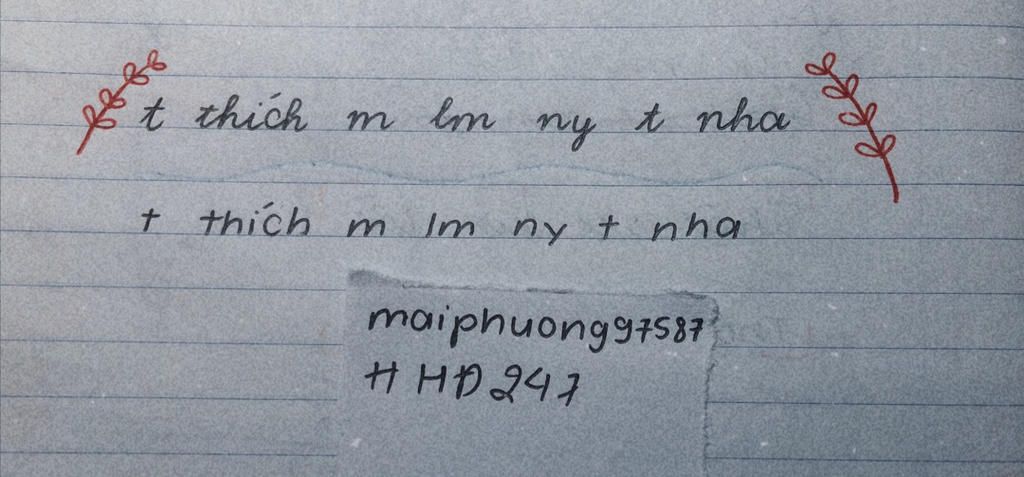 t thích m lm ny t nha
t thích m lm ny t nha
maiphuong97587
# HĐ247